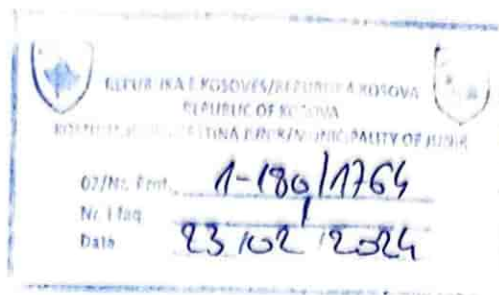 REPUBLIKA E KOSOVËS/REPUBLIKA KOSOVA
REPUBLIC OF KOSOVA
KOMUNA E JUNIKUT/OPŠTINA JUNIK/MUNICIPALITY OF JUNIK
02/Nr. Prot. 1-180/1764
Nr. i faq
Data 23/02/2024